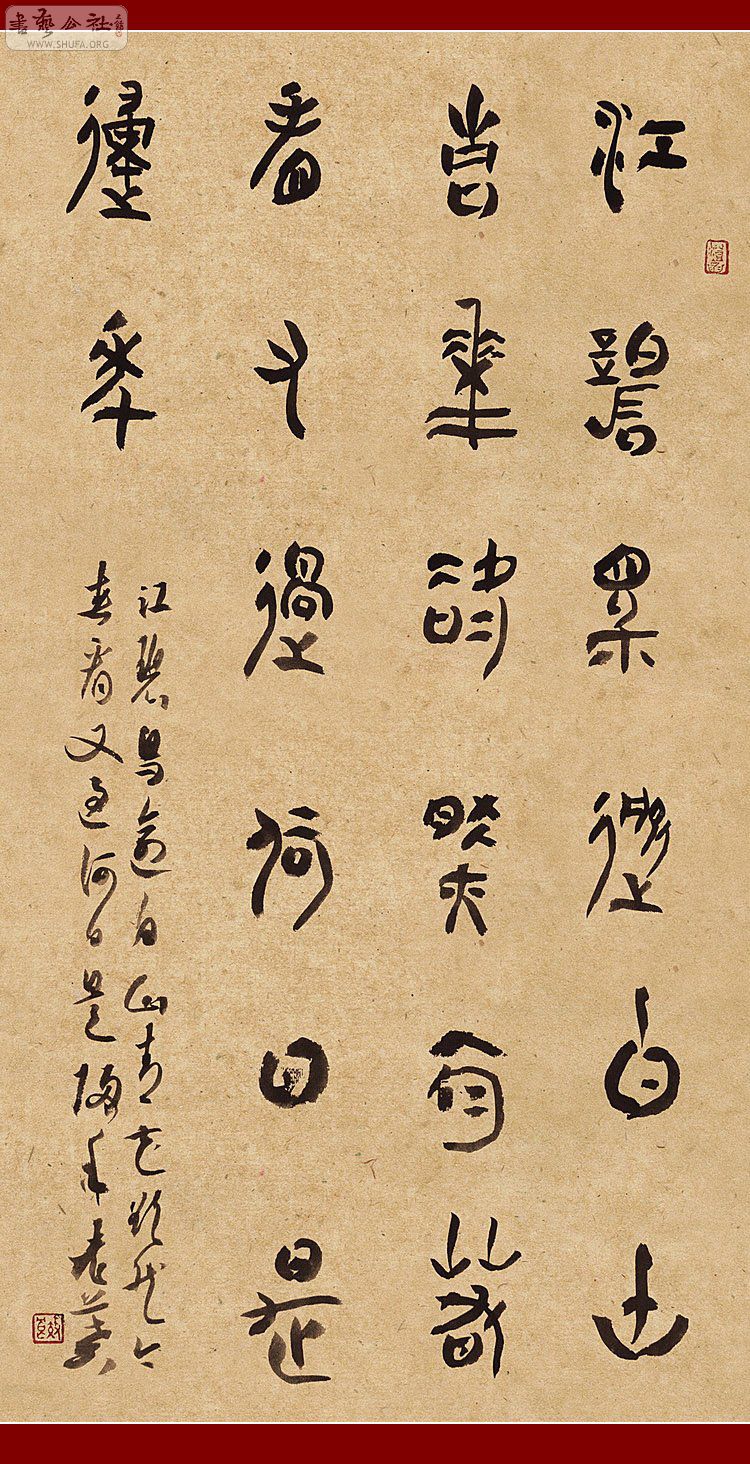 書藝公社
WWW.SHUFA.ORG
江碧鳥逾白山
青華欲然今春
看又過何日是
歸年
江碧鳥逾白山青花欲然今
春看又過何日是歸年